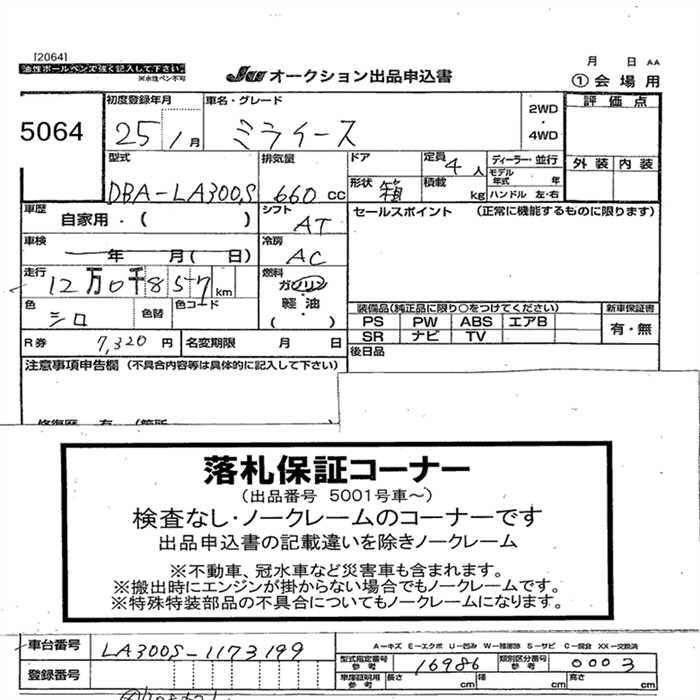 [2064]
油性ボールペンで強く記入して下さい。
※水性ペン不可
JU オークション出品申込書
月 日 AA
①会場用
5064
初度登録年月
25/1月
車名・グレード
ミライース
2WD
・
4WD
評価点
外装 内装
型式
DBA-LA300S
排気量
660cc
ドア
定員
4人
形状
箱
積載
kg
ディーラー・並行
モデル年式 年
ハンドル 左・右
車歴
自家用・( )
シフト
AT
セールスポイント (正常に機能するものに限ります)
車検
年 月( 日)
冷房
AC
走行
12万0千857km
燃料
ガソリン
・
軽油
( ・ )
色
シロ
色替
色コード
装備品(純正品に限り○をつけてください)
新車保証書
PS PW ABS エアB
SR ナビ TV
有・無
R券
7,320円
名変期限 月 日
後日品
注意事項申告欄 (不具合内容等は具体的に記入して下さい)
落札保証コーナー
(出品番号 5001号車～)
検査なし・ノークレームのコーナーです
出品申込書の記載違いを除きノークレーム
※不動車、冠水車など災害車も含まれます。
※搬出時にエンジンが掛からない場合でもノークレームです。
※特殊特装部品の不具合についてもノークレームになります。
車台番号
LA300S-1173199
A－キズ E－エクボ U－凹み W－補修跡 S－サビ C－腐食 XX－交換済
型式指定番号
参考
16986
類別区分番号
参考
0003
登録番号
車庫証明用
参考
長さ
cm
幅
cm
高さ
cm